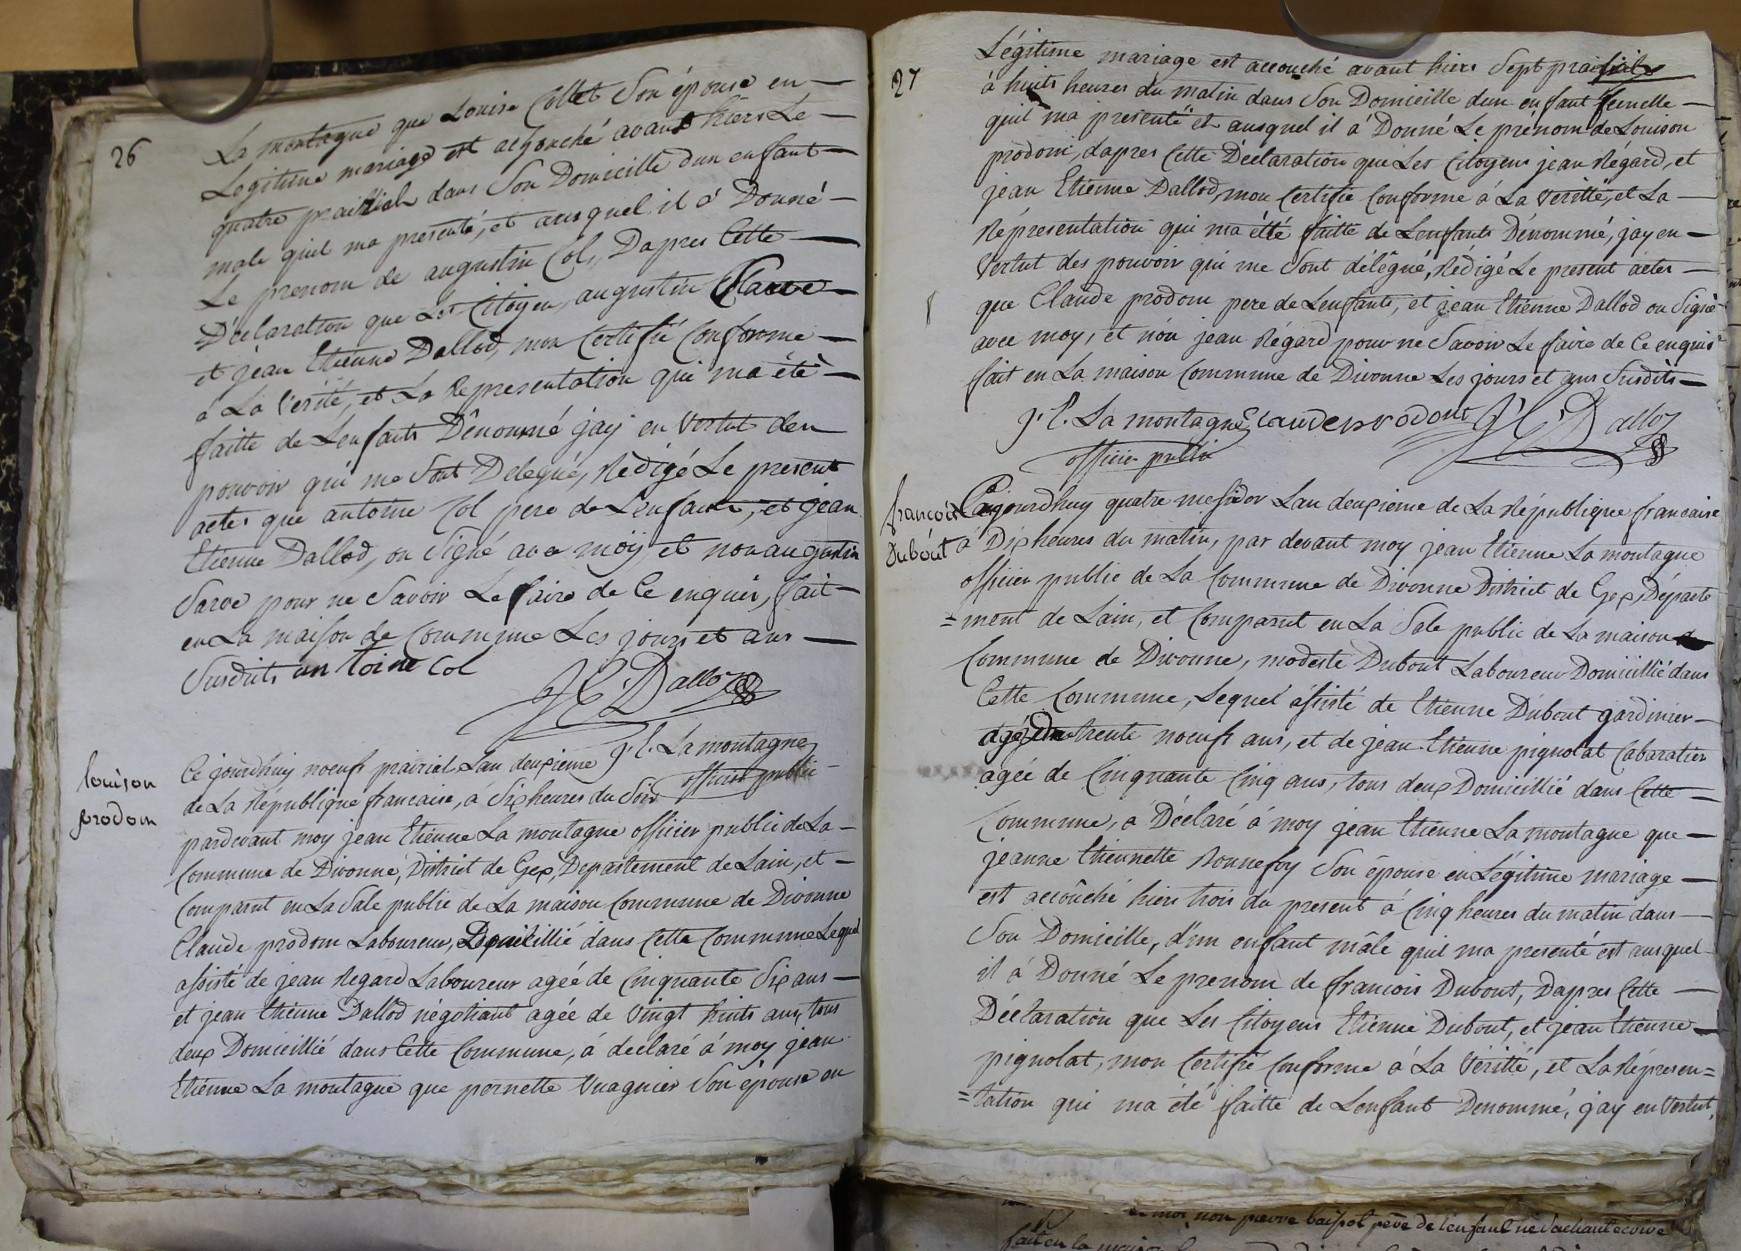 26
La montagne que Louise Collet Son épouse en
Legitime mariage est acchouché avant hiers Le
quatre prairial dans Son Domicille dun enfant
male quil ma presenté, et ausquel il a Donné
Le prenom de augustin Col, Dapres Cette
Déclaration que Les Citoyen, augustin
et jean Etienne Dallod, mon Certifié Conforme
a La Vérité, et La Representation qui ma été
faitte de Lenfants Dénommé jay en Vertut des
pouvoir qui me Sont Delegué, Rédigé Le present
actes que antoine Col pere de Lenfant, et jean
Etienne Dallod, on Signé avec moÿ, et non augustin
Sarve pour ne Savoir Le faire de Ce enquis, fait
en La maison de Commune Les jours et ans
Susdits antoine Col
J E Dalloz
j. E. La montagne
officier public
louison
prodom
Ce jourdhuy noeufs prairial Lan deuxieme
de La République francaise, à Six heures du Soir
pardevant moy jean Etienne La montagne officier public de La
Commune de Divonne, District de Gex, Departement de Lain, et
Comparut en La Sale public de La maison Commune de Divonne
Claude prodom Laboureur, Domicillié dans Cette Commune Lequel
assisté de jean Regard Laboureur agée de Cinquante Six ans
et jean Etienne Dallod négotiant agée de Vingt huits ans, tous
deux Domicillié dans Cette Commune, à declaré à moy jean
Etienne La montagne que pernette Vuagnier Son épouse en
27
Légitime mariage est accouché avant hiers Sept prairial
à huits heures du matin dans Son Domicille dun enfant femelle
quil ma presenté et ausquel il à Donné Le prénom de Louison
prodom, dapres Cette Déclaration que Les Citoyens jean Régard, et
jean Etienne Dallod, mon Certifié Conforme à La Veritté, et La
Répresentation qui ma étté faitte de Lenfants Dénommé, jay en
Vertut des pouvoir qui me Sont délégué, Rédigé Le present actes
que Claude prodom pere de Lenfants, et jean Etienne Dallod on Signé
avec moy, et non jean Régard pour ne Savoir Le faire de Ce enquis
fait en La maison Commune de Divonne Les jours et ans Susdits
j. E. La montagne Claude prodom J E Dalloz
officier public
francois
Dubout
Cejourdhuy quatre messidor Lan deuxieme de La République francaise
a Dix heures du matin, par devant moy jean Etienne La montagne
officier public de La Commune de Divonne District de Gex, Départe
=ment de Lain, et Comparut en La Sale public de La maison
Commune de Divonne, modeste Dubout Laboureur Domicillié dans
Cette Commune, Lequel assisté de Etienne Dubout gardinier
agée trente noeufs ans, et de jean Etienne pignolat Cabaratier
agée de Cinquante Cinq ans, tous deux Domicillié dans Cette
Commune, a Déclaré à moy jean Etienne La montagne que
jeanne Etiennette Bonnefoy Son épouse en Légitime mariage
est accouché hier trois du present à Cinq heures du matin dans
Son Domicille, d'un enfant mâle quil ma presenté est ausquel
il à Donné Le prenom de francois Dubout, Dapres Cette
Déclaration que Les Citoyens Etienne Dubout, et jean Etienne
pignolat, mon Certifié Conforme à La Véritté, et La Répresen=
=tation qui ma été faitte de Lenfant Dénommé, jay en Vertut,
non pierre père de lenfant ne Sachant écrire
fait en la maison